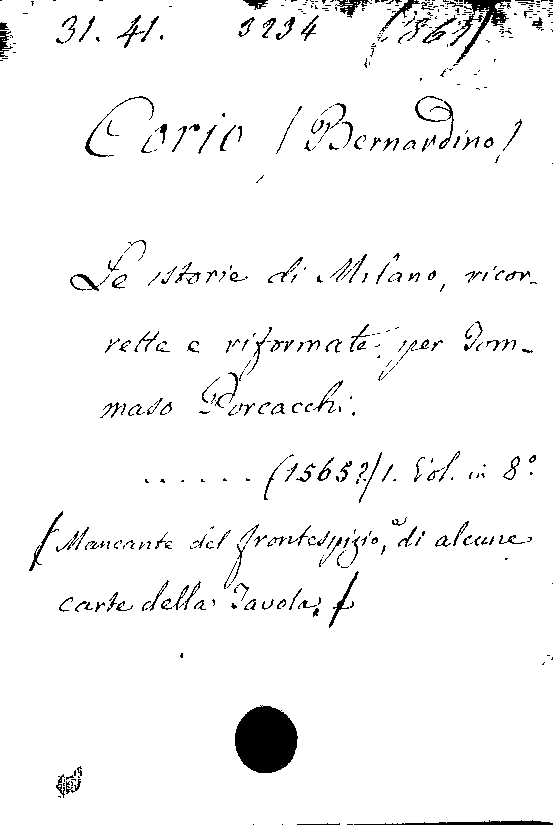 31. 41. 3234 (861)
Corio (Bernardino)
Le istorie di Milano, ricor-
rette e riformate per Tom-
maso Porcacchi.
...... (1565?) 1. Vol. in 8°
(Mancante del frontespizio, e di alcune
carte della Tavola.)